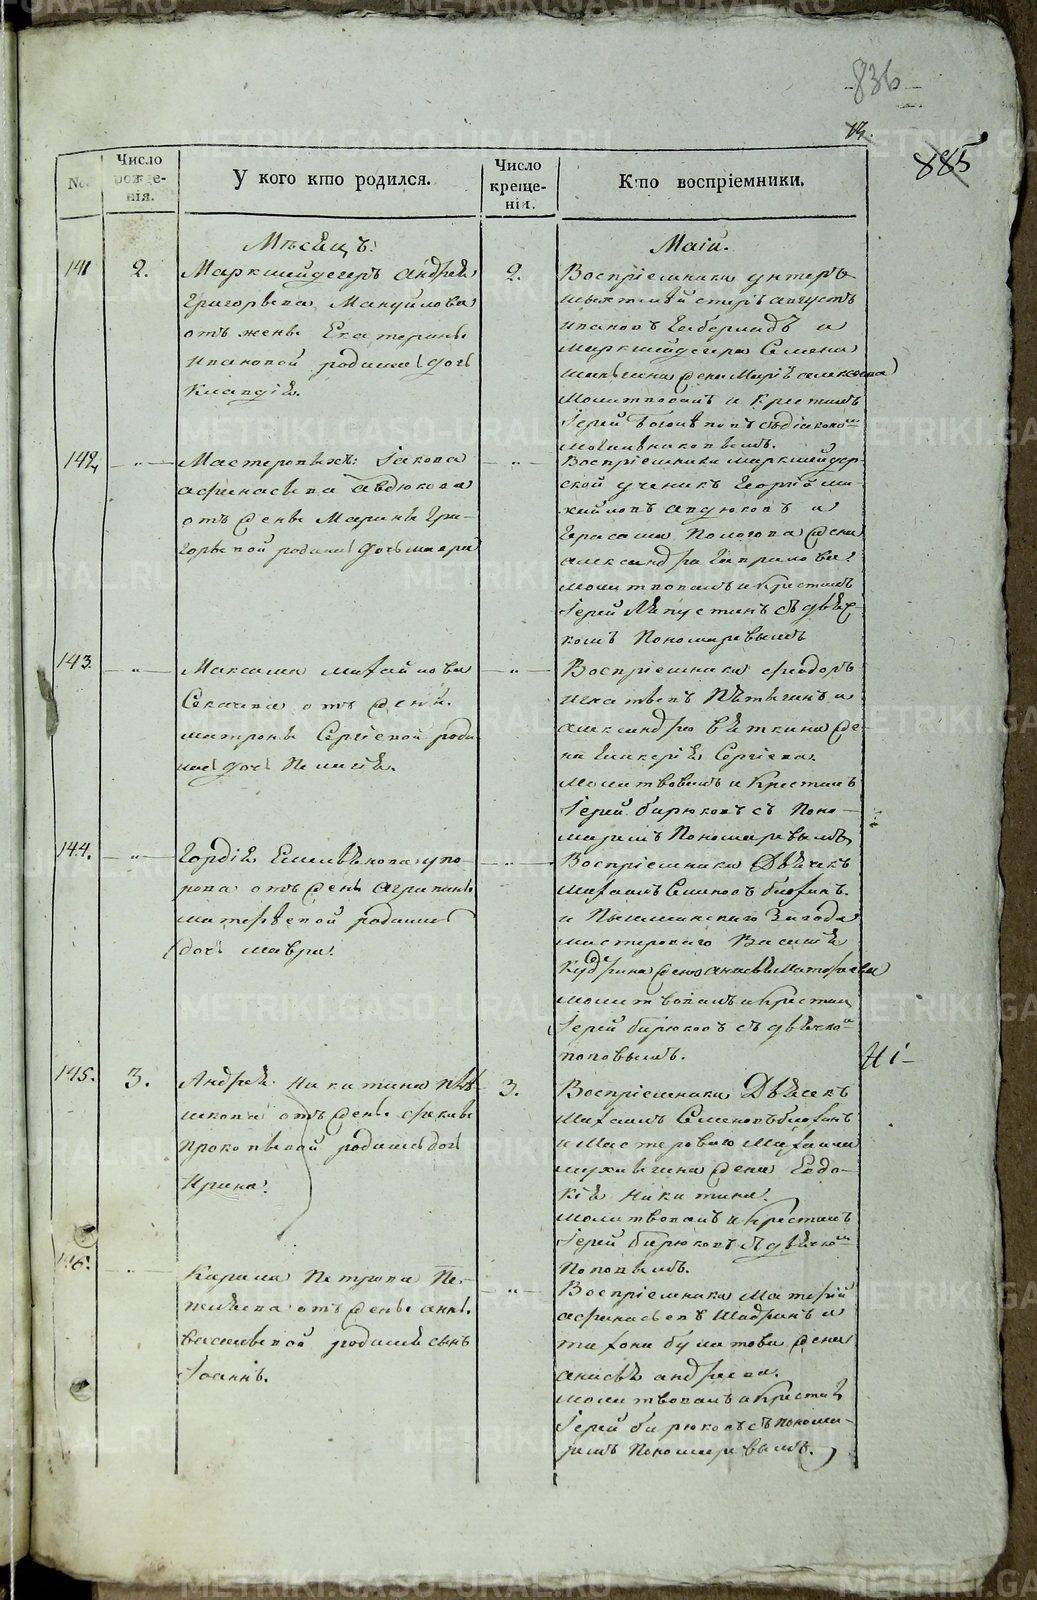 836
13.
885
No.
Число рожде-нія.
У кого кто родился.
Число креще-нія.
Кто воспріемники.
Мѣсяцъ:
Маій.
141
2.
Маркшейдеръ Андрей
Григорьева Мануйлова
отъ жены Екатерины
Ивановой родилась дочь
Клавдія.
2.
Воспріемники унтеръ-
Августъ
Ивановъ и
маркшейдера Семена
жена Марія
молитвовалъ и крестилъ
Іерей съ діакономъ
142.
Мастеровыхъ: Іакова
Афанасьева Авдюкова
отъ жены Марины Гри-
горьевой родилась дочь Марія
Воспріемники маркшейдер-
ской ученикъ Георгій Ми-
хайловъ Авдюковъ и
Герасима жена
Александра Гаврилова:
молитвовалъ и крестилъ
Іерей Лапустинъ съ дьяч-
комъ Пономаревымъ
143.
Максима Михайлова
Секачева отъ жены
Матроны Сергіевой роди-
лась дочь Пелагія.
Воспріемники Феодоръ
Игнатьевъ и
Александра Вяткина же-
на Гликерія Сергіева.
молитвовалъ и крестилъ
Іерей Бирюковъ съ поно-
маремъ Пономаревымъ
144.
Гордія Емельянова Уко-
рова отъ жены Агрипины
Матфѣевой родилась
дочь Мавра.
Воспріемники Дьячекъ
Михаилъ Семеновъ
и Пышминскаго Завода
мастероваго Василія
Кудрина жена Анисья Матфеева
молитвовалъ и крестилъ
Іерей Бирюковъ съ дьячкомъ
Поповымъ.
Ні-
145.
3.
Андрея Никитина
отъ жены Феклы
Прокопьевой родилась дочь
Ирина.
3.
Воспріемники Дьячекъ
Михаилъ Семеновъ
и мастероваго Михаила
жена Евдо-
кія Никитина.
молитвовалъ и крестилъ
Іерей Бирюковъ съ дьячкомъ
Поповымъ.
146.
Карпа Петрова
отъ жены Анны
Васильевой родился сынъ
Іоаннъ.
Воспріемники Матфій
Афанасьевъ Шадринъ и
Тихона Булатова жена
Анисья Андреева.
молитвовалъ и крестилъ
Іерей Бирюковъ съ понома-
ремъ Пономаревымъ.
METRIKI.GASO-URAL.RU